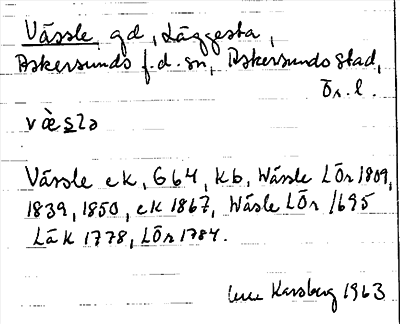 Vässle gd, Läggesta,
Askersunds f.d. sn, Askersunds stad,
Ör. l.
vὲslə
Vässle ek, G64, Kb, Wässle LÖr 1809,
1839, 1850, ek 1867, Wäsle LÖr 1695
LäK 1778, LÖr 1784.
Karsberg 1963